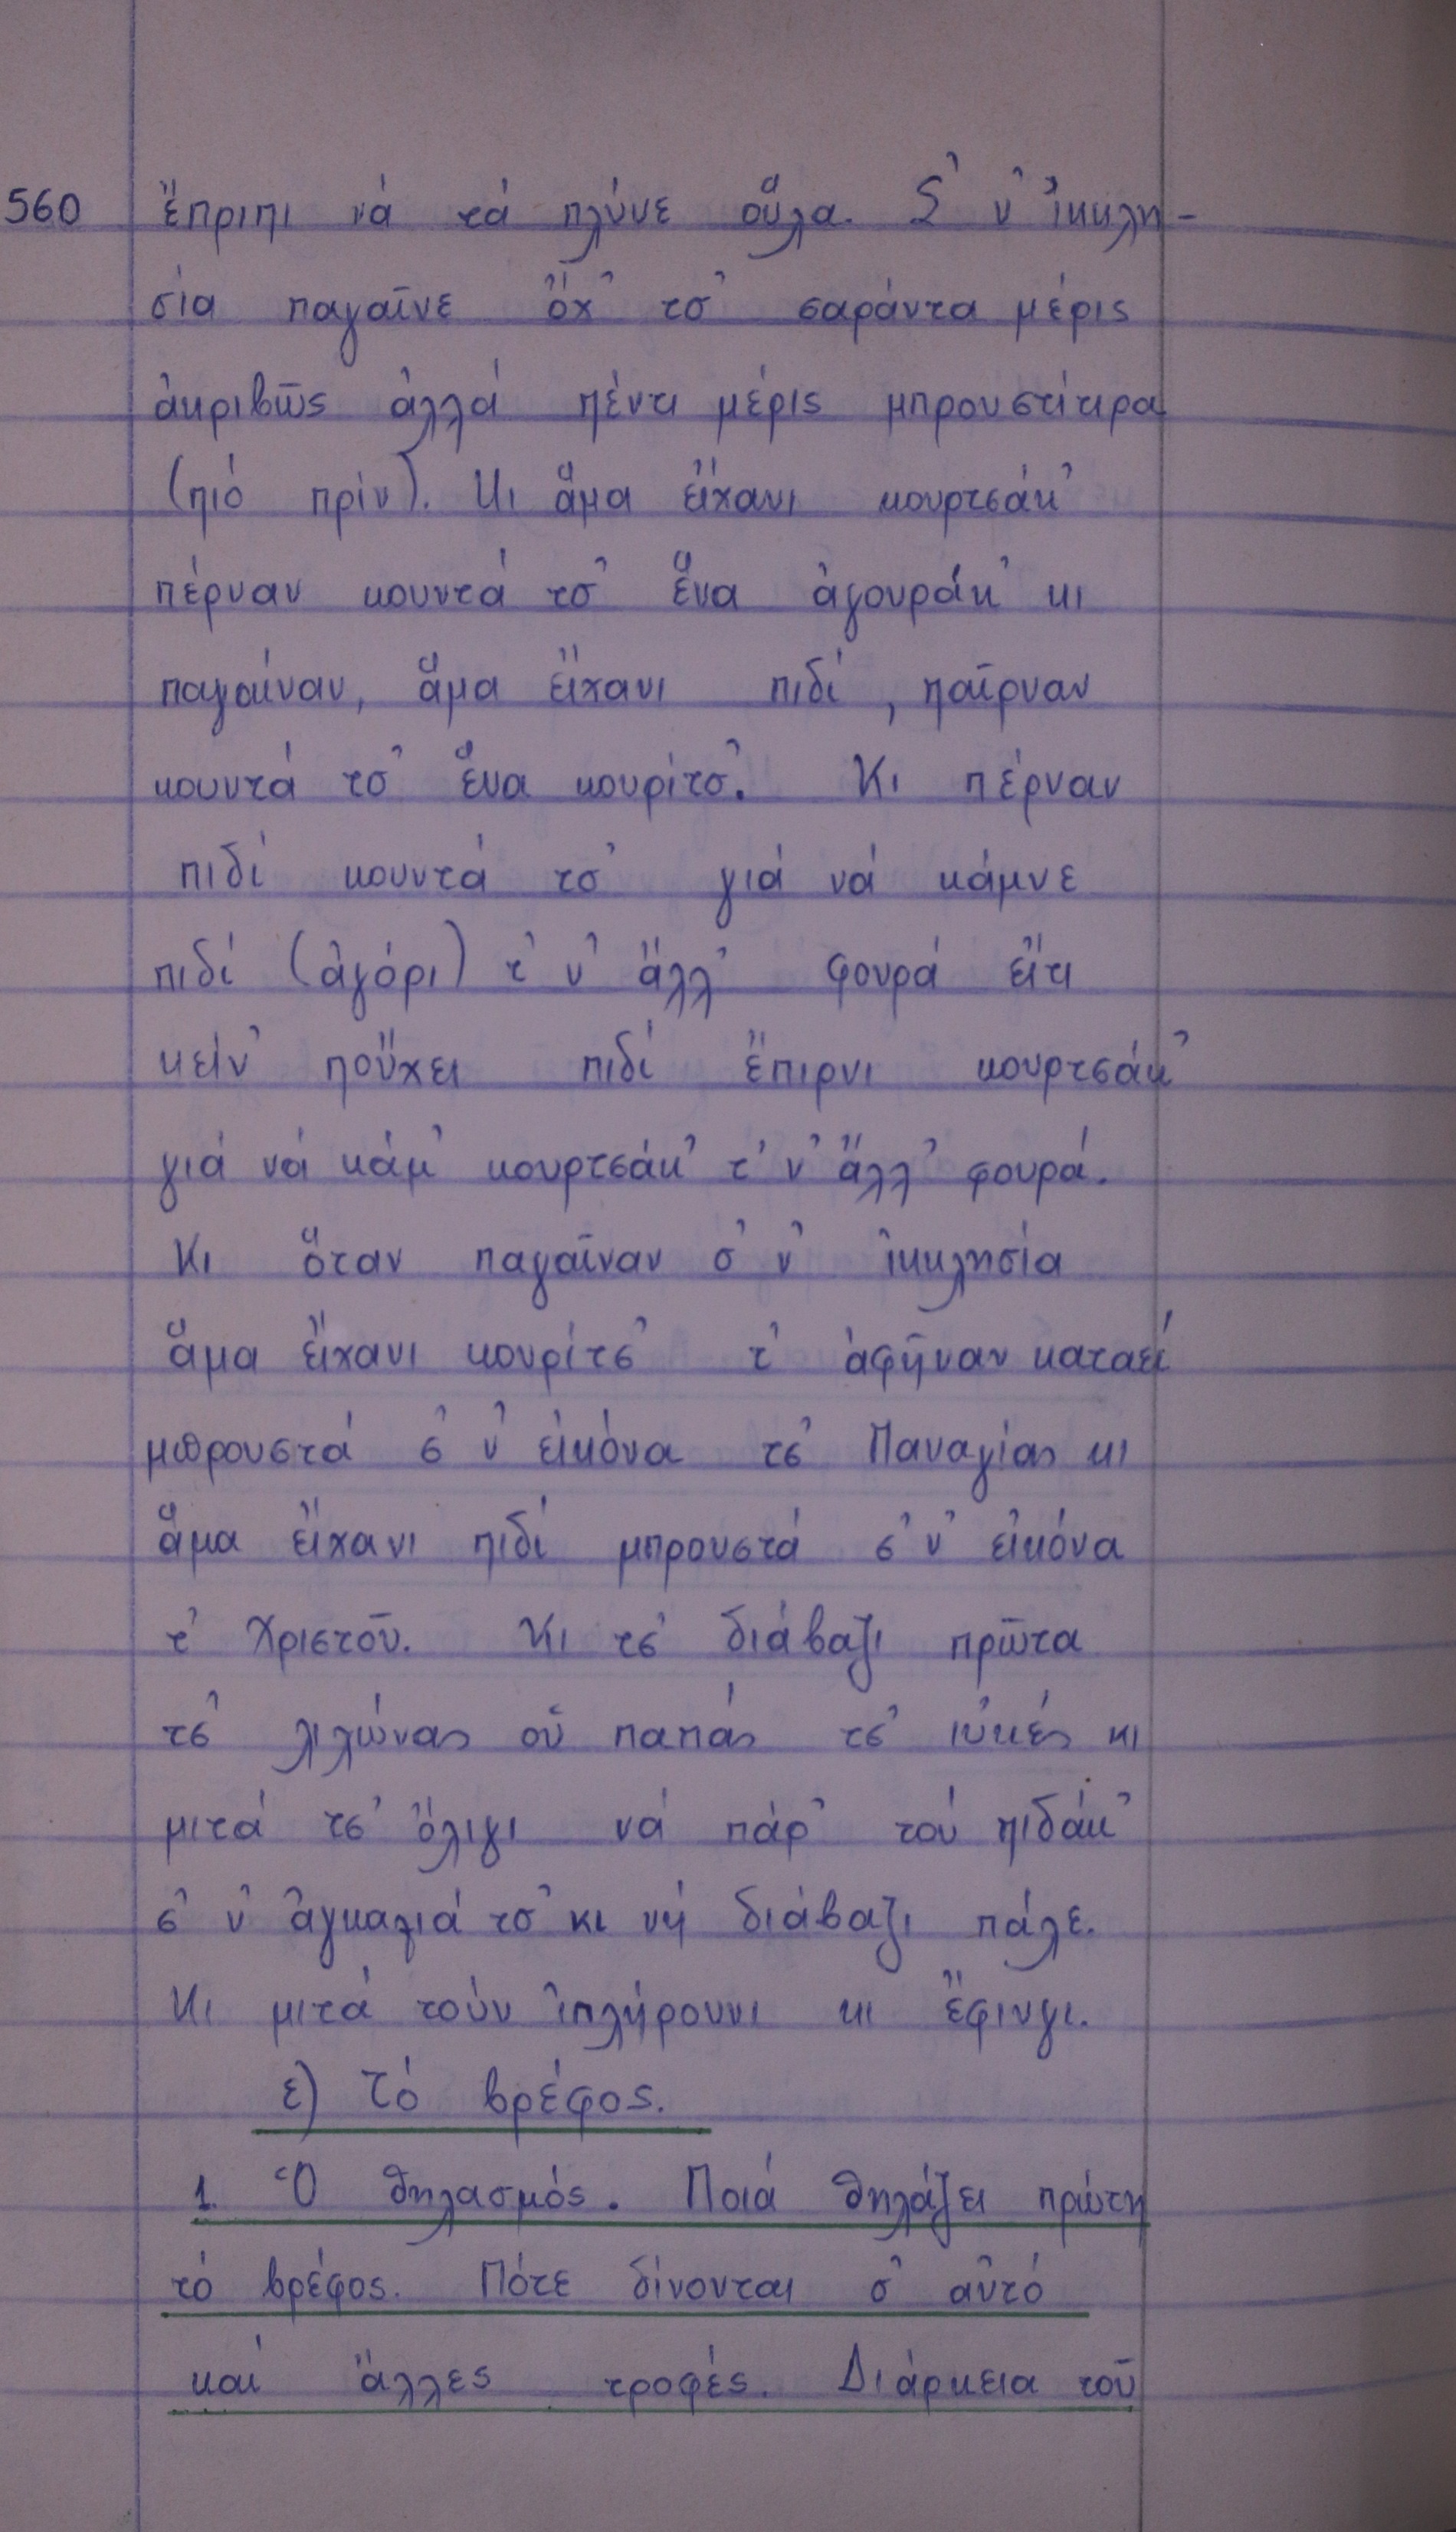 560 ἔπριπι νά τά πλύνε οὕλα. Σ᾿ ν᾿ ἰκκλη-
σία παγαῖνε ὄχ᾿ τσ᾿ σαράντα μέρις
ἀκριβῶς ἀλλά πέντι μέρις μπρουστίτιρα
(πιό πρίν). Κι ἅμα εἴχανι κουρτσάκ᾿
πέρναν κουντά τσ᾿ ἕνα ἀγουράκ᾿ κι
παγαίναν, ἅμα εἴχανι πιδί, παῖρναν
κουντά τσ᾿ ἕνα κουρίτσ᾿. Κι πέρναν
πιδί κουντά τσ᾿ γιά νά κάμνε
πιδί (ἀγόρι) τ᾿ ν᾿ ἄλλ᾿ φουρά εἴτι
κείν᾿ ποὔχει πιδί ἔπιρνι κουρτσάκ᾿
γιά νά κάμ᾿ κουρτσάκ᾿ τ᾿ ν᾿ ἄλλ᾿ φουρά.
Κι ὅταν παγαῖναν σ᾿ ν᾿ ἰκκλησία
ἅμα εἴχανι κουρίτσ᾿ τ᾿ ἀφῆναν καταεί
μπρουστά σ᾿ ν᾿ εἰκόνα τσ᾿ Παναγίας κι
ἅμα εἴχανι πιδί μπρουστά σ᾿ ν᾿ εἰκόνα
τ᾿ Χριστοῦ. Κι τσ᾿ διάβαζι πρῶτα
τσ᾿ λιλώνας οὑ παπάς τσ᾿ ιὐκές κι
μιτά τσ᾿ ὄλιγι νά πάρ᾿ τού πιδάκ᾿
σ᾿ ν᾿ ἀγκαλιά τσ᾿ κι νή διάβαζι πάλε.
Κι μιτά τούν ἰπλήρουνι κι ἔφινγι.
ε) Τό βρέφος.
1. Ὁ θηλασμός. Ποιά θηλάζει πρώτη
τό βρέφος. Πότε δίνονται σ᾿ αὐτό
καί ἄλλες τροφές. Διάρκεια τοῦ